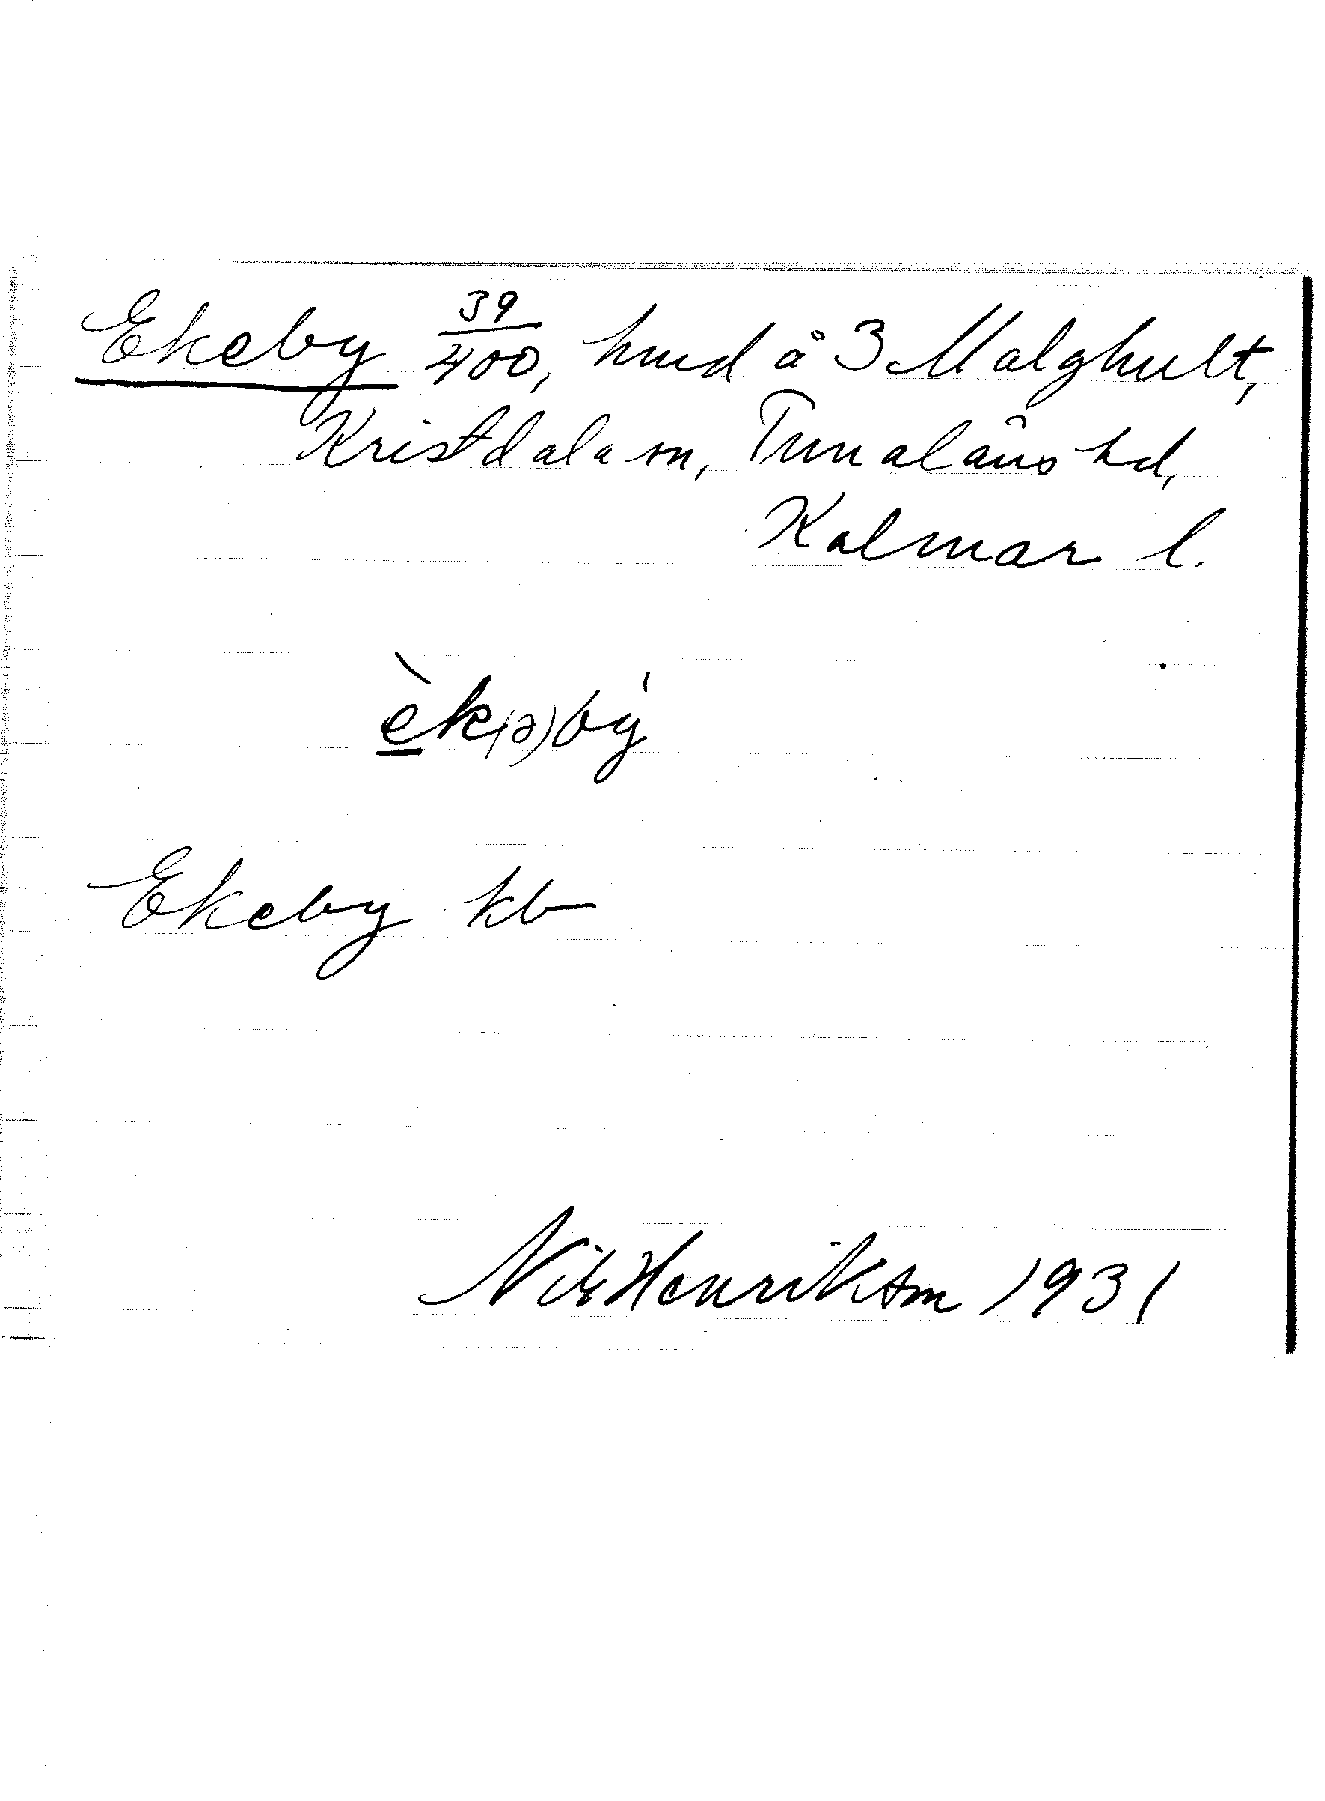 Ekeby 39/400, hmd å 3 Malghult,
Kristdala sn, Tunaläns hd,
Kalmar l.
èk(ə)bý
Ekeby kb
Nils Henrikson 1931